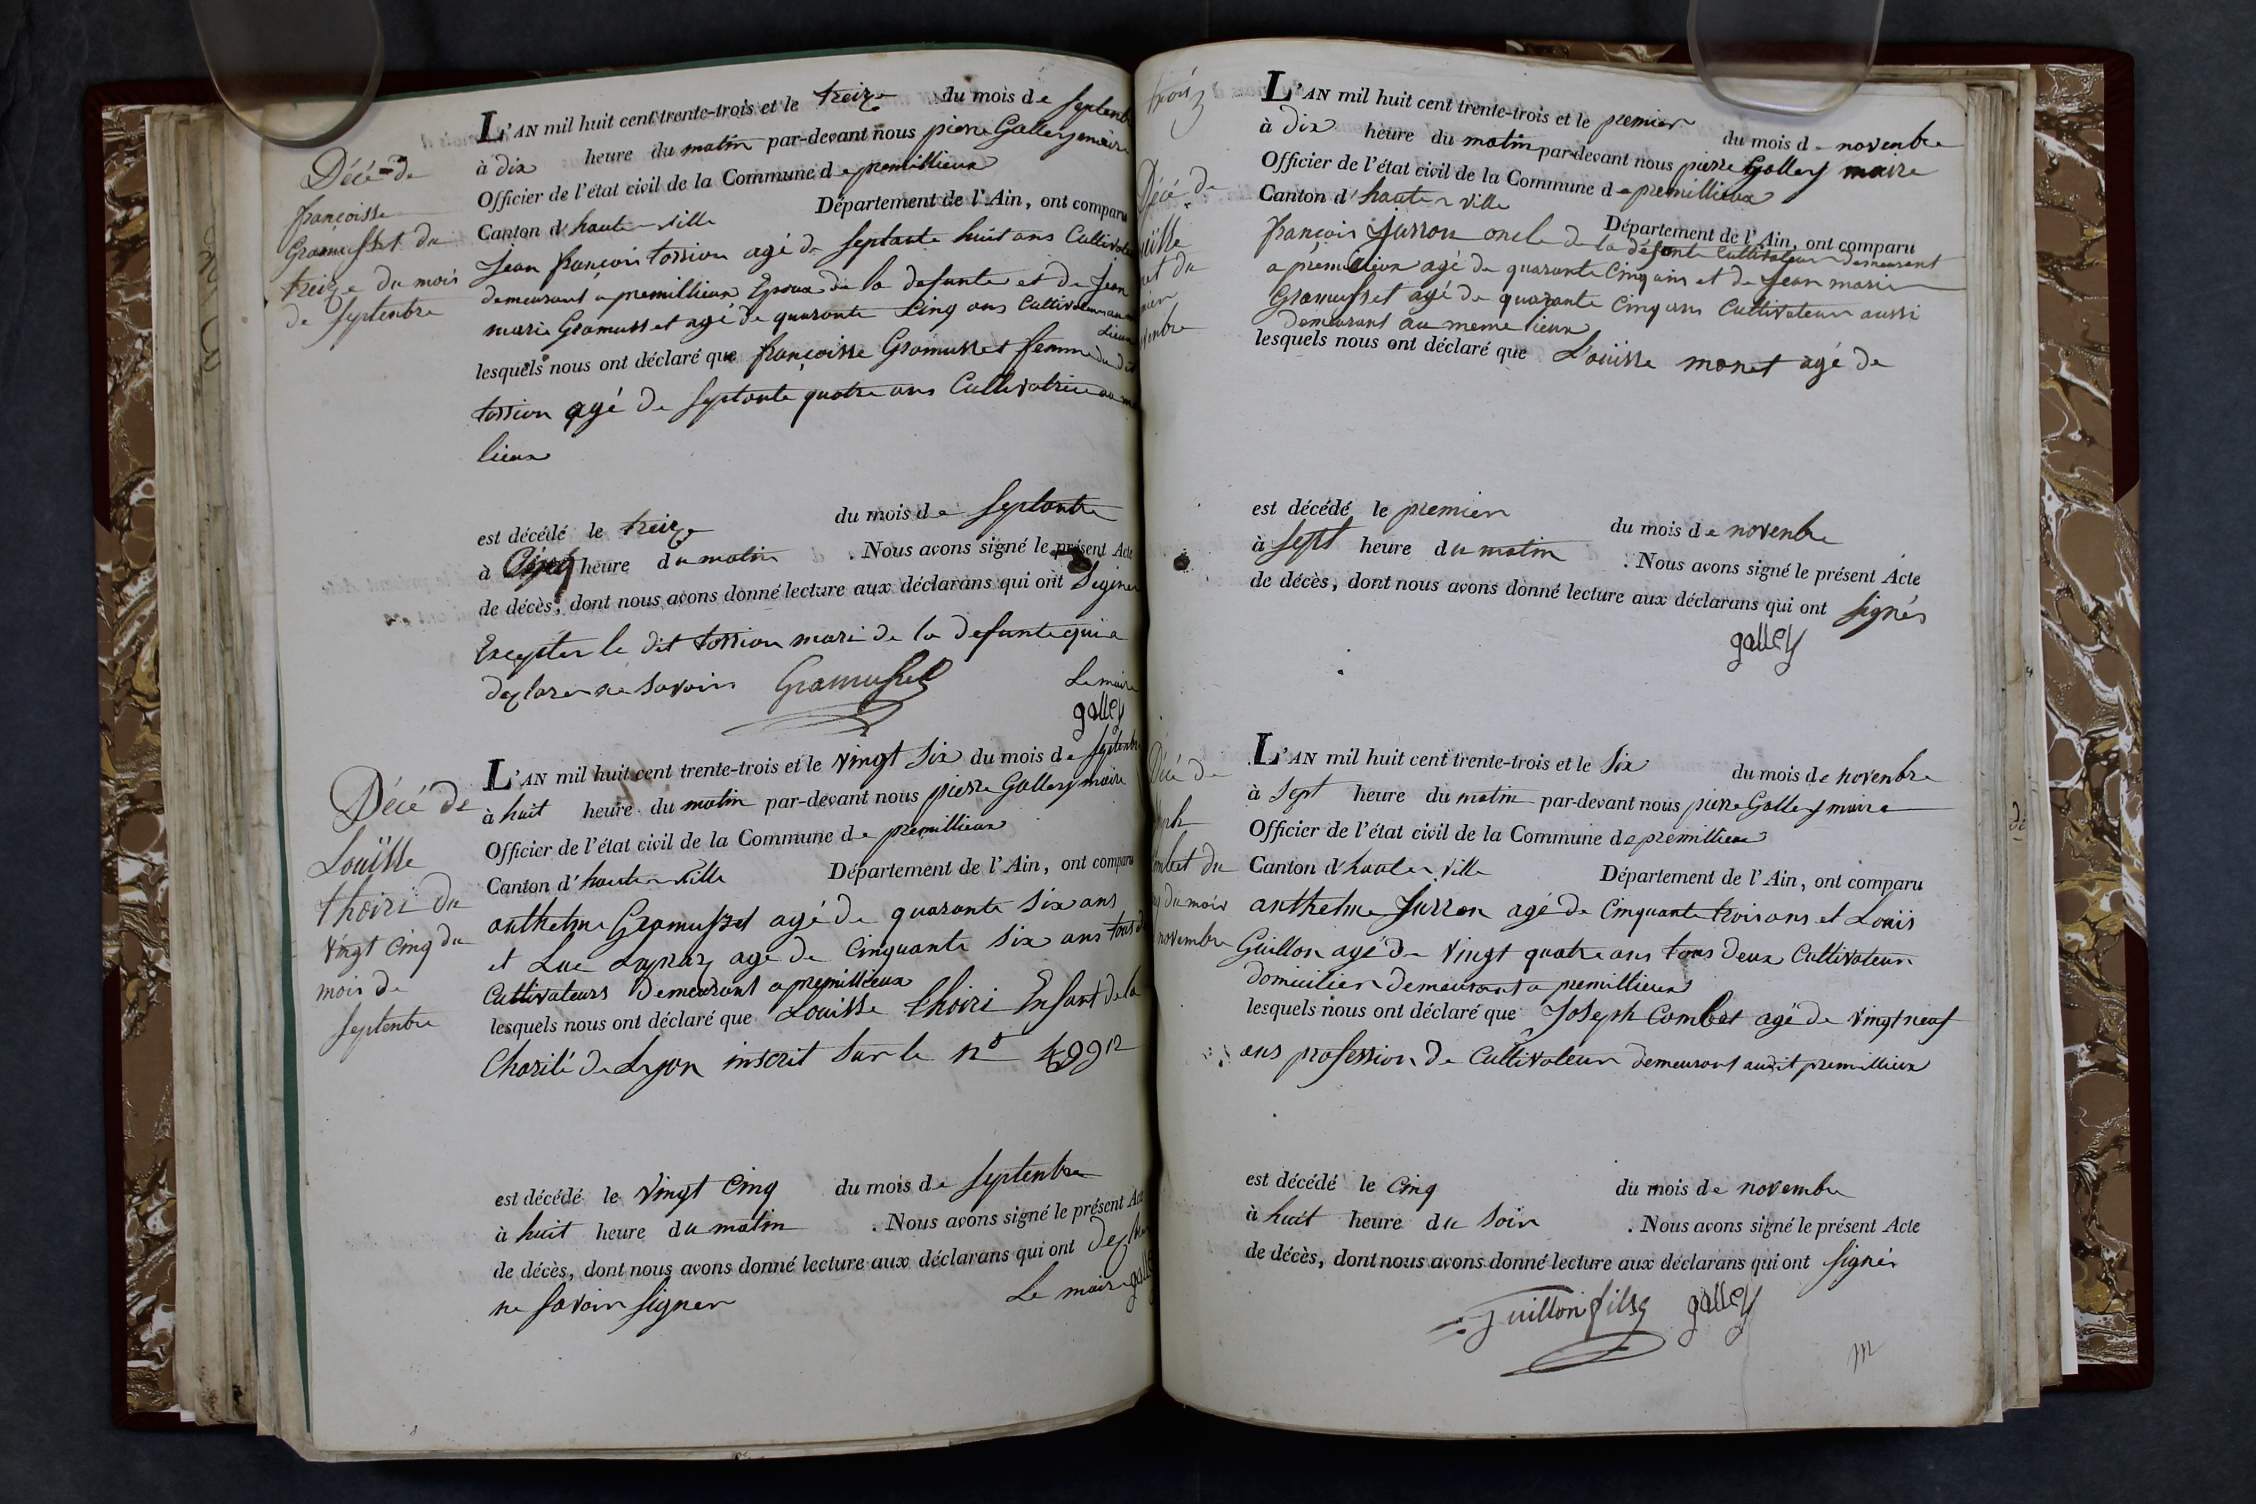 Décé de
françoisse
Gramusset du
treize du mois
de septenbre
L'AN mil huit cent trente-trois et le treize du mois de septenbre
à dix heure du matin par-devant nous pierre Galley maire
Officier de l'état civil de la Commune de premillieux
Canton d'haute ville Département de l'Ain, ont comparu
Jean françois tossion agé de septante huit ans Cultivateur
demeurant a premillieux Epoux de la defunte et de Jean
marie Gramusset agé de quarante Cinq ans Cultivateur au
Lieux
lesquels nous ont déclaré que françoisse Gramusset femme du dit
tossion agé de septante quatre ans Cultivatrice au
lieux
est décédé le treize du mois de septantre
à heure du matin . Nous avons signé le présent Acte
de décès, dont nous avons donné lecture aux déclarans qui ont Signer
Excepter le dit tossion mari de la defunte qui a
declarer ne savoir Gramusset Le maire
galley
Décé de
Louïsse
thoiri du
vingt cinq du
mois de
septenbre
L'AN mil huit cent trente-trois et le vingt six du mois de septenbre
à huit heure du matin par-devant nous pierre Galley maire
Officier de l'état civil de la Commune de premillieux
Canton d'haute ville Département de l'Ain, ont comparu
anthelme Gramusset agé de quarante six ans
et Luc agé de Cinquante six ans tous
Cultivateurs demeurant a premillieux
lesquels nous ont déclaré que Louisse thoiri Enfant de la
Charité de Lyon inscrit sur le n°
est décédé le vingt Cinq du mois de septenbre
à huit heure du matin . Nous avons signé le présent Acte
de décès, dont nous avons donné lecture aux déclarans qui ont
ne savoir signer Le maire galley
trois
Décé de
ouïsse
L'AN mil huit cent trente-trois et le premier du mois de novenbre
à dix heure du matin par-devant nous pierre Galley maire
Officier de l'état civil de la Commune de premillieux
Canton d'haute ville Département de l'Ain, ont comparu
françois Jurron oncle de la défunte Cultivateur demeurant
a premillieux agé de quarante Cinq ans et de Jean marie
Gramusset agé de quarante Cinq ans Cultivateur aussi
demeurant au meme lieux
lesquels nous ont déclaré que Louïsse monet agé de
est décédé le premier du mois de novenbre
à sept heure du matin . Nous avons signé le présent Acte
de décès, dont nous avons donné lecture aux déclarans qui ont signés
galley
Décé de
seph
ombet du
du mois
novembre
L'AN mil huit cent trente-trois et le six du mois de novenbre
à sept heure du matin par-devant nous pierre Galley maire
Officier de l'état civil de la Commune de premillieux
Canton d'haute ville Département de l'Ain, ont comparu
anthelme Jurron agé de Cinquante trois ans et Louis
Guillon agé de vingt quatre ans tous deux Cultivateur
domicilier demeurant a premillieux
lesquels nous ont déclaré que Joseph Combet agé de vingt neuf
ans profession de Cultivateur demeurant audit premillieux
est décédé le Cinq du mois de novembre
à huit heure du soir . Nous avons signé le présent Acte
de décès, dont nous avons donné lecture aux déclarans qui ont signés
guillon fils galley